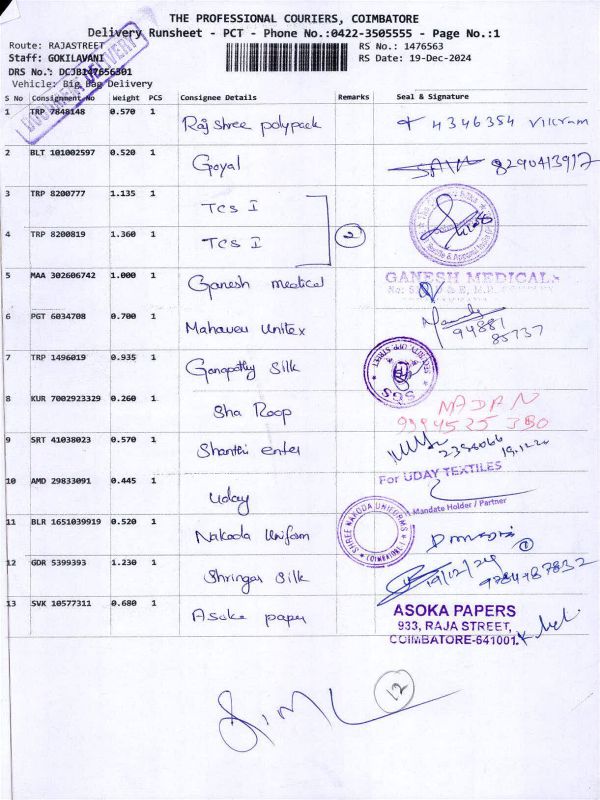 THE PROFESSIONAL COURIERS, COIMBATORE
Delivery Runsheet - PCT - Phone No.:0422-3505555 - Page No.:1
Route: RAJASTREET RS No.: 1476563
Staff: GOKILAVANI RS Date: 19-Dec-2024
DRS No.: DCJB147656301
Vehicle: Big Bag Delivery
DOCUMENT DELIVERY
S No Consignment No Weight PCS Consignee Details Remarks Seal & Signature
1 TRP 7848148 0.570 1 Rajshree polypack 4346354 Vikram
2 BLT 101002597 0.520 1 Goyal 8290413917
3 TRP 8200777 1.135 1 TCS I
2
4 TRP 8200819 1.360 1 TCS I
5 MAA 302606742 1.000 1 Ganesh medical GANESH MEDICALS
6 PGT 6034708 0.700 1 Mahaveer Unitex 94881
85737
7 TRP 1496019 0.935 1 Ganapathy Silk SGS
8 KUR 7002923329 0.260 1 Sha Roop MADAN
9994525380
9 SRT 41038023 0.570 1 Shanthi enter 2396066
19.12.20
10 AMD 29833091 0.445 1 Uday For UDAY TEXTILES
Mandate Holder / Partner
11 BLR 1651039919 0.520 1 Nakoda Uniform SHREE NAKODA UNIFORMS
(COIMBATORE)
1
12 GDR 5399393 1.230 1 Shringar Silk 19/12/24 9784487832
13 SVK 10577311 0.680 1 Asoka paper ASOKA PAPERS
933, RAJA STREET,
COIMBATORE-641001.
12